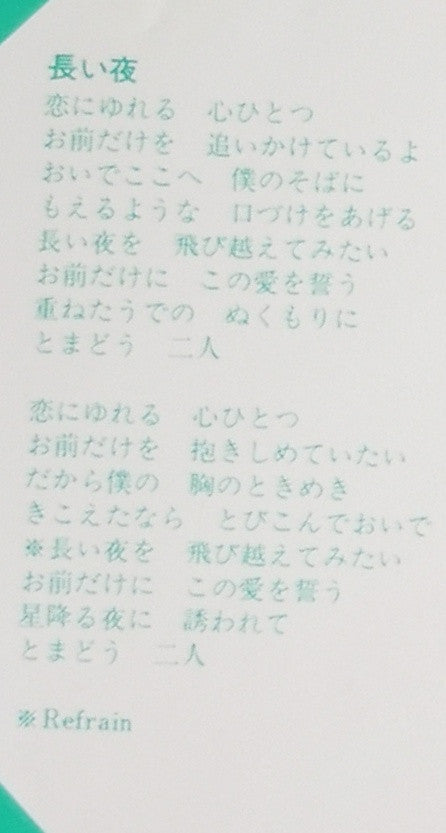 長い夜
恋にゆれる　心ひとつ
お前だけを　追いかけているよ
おいでここへ　僕のそばに
もえるような　口づけをあげる
長い夜を　飛び越えてみたい
お前だけに　この愛を誓う
重ねたうでの　ぬくもりに
とまどう　二人
恋にゆれる　心ひとつ
お前だけを　抱きしめていたい
だから僕の　胸のときめき
きこえたなら　とびこんでおいで
※長い夜を　飛び越えてみたい
お前だけに　この愛を誓う
星降る夜に　誘われて
とまどう　二人
※Refrain